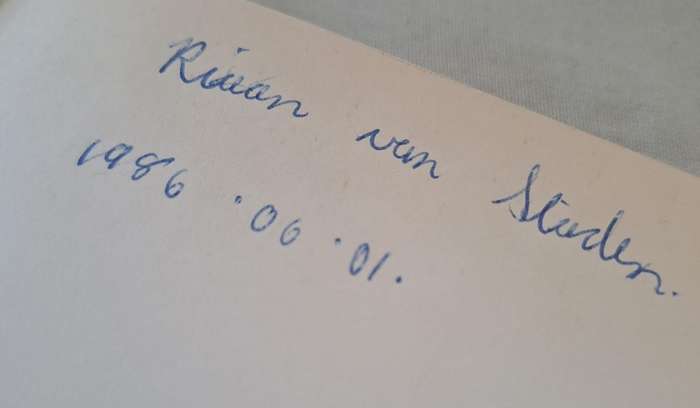 Riaan van Staden.
1986.06.01.